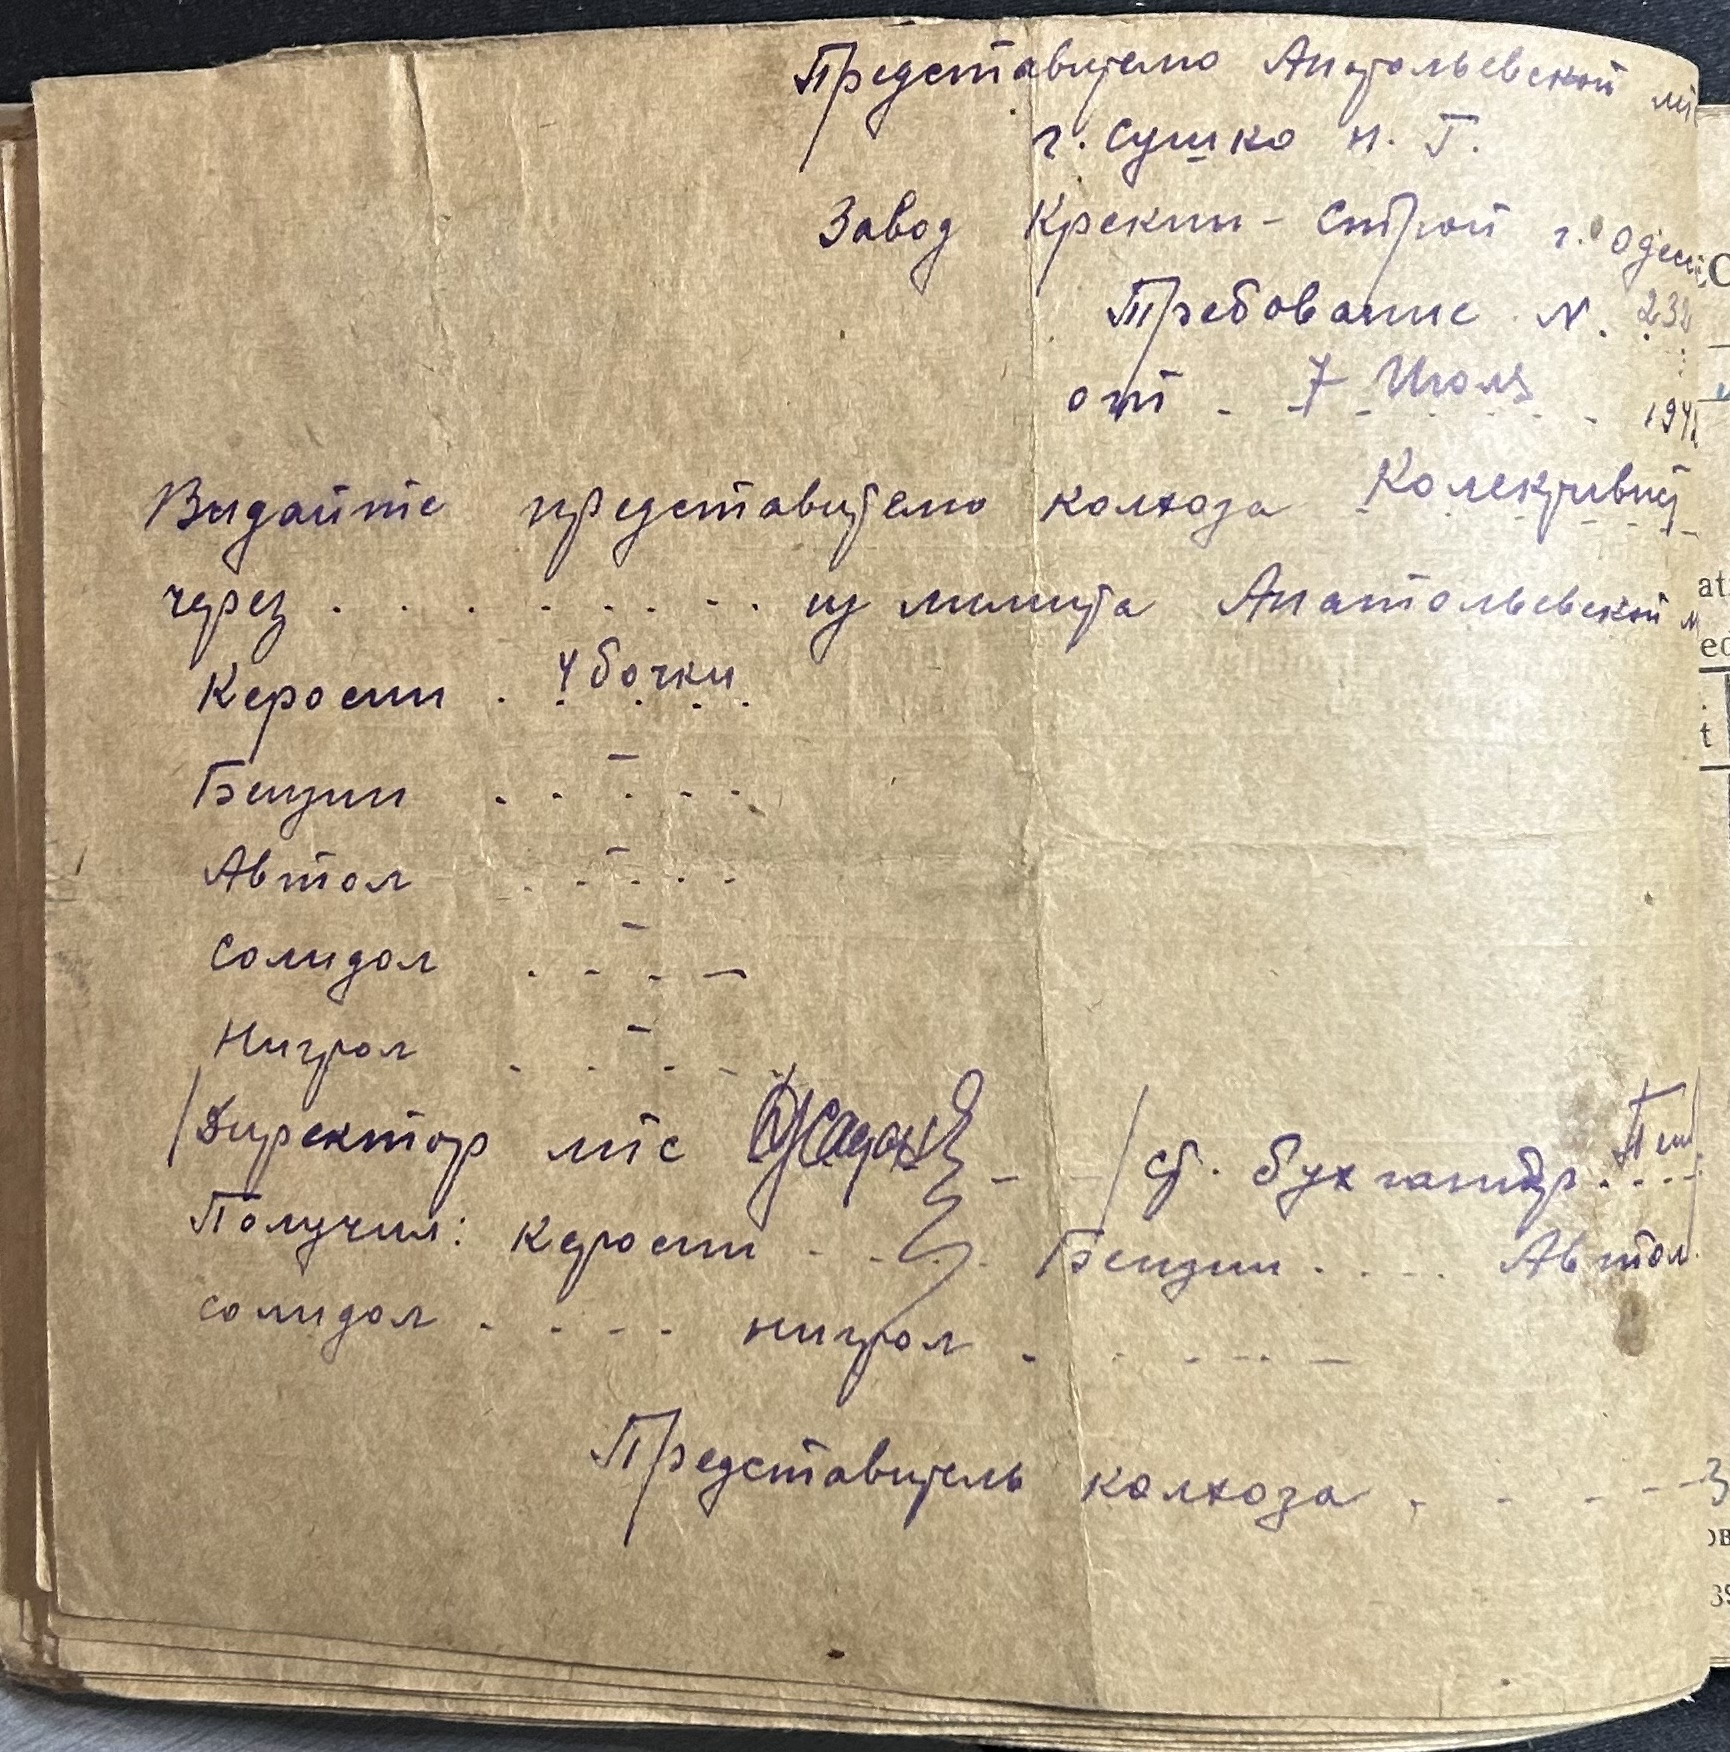 Представителю Анатольевской
г. Сушко Н. Г.
Завод Крекин-Строй г. Одес
Требование N. 232
от . 7 Июля . 194
Выдайте представителю колхоза Колективист
через . . . . . . . . из лимита Анатольевской м
Керосин . 4 бочки
Бензин . . – . .
Автол . . – . .
Солидол . . – . –
Нигрол . . – . .
/Директор мтс – – / ст. бухгалтер . . . .
Получил: Керосин . . . . Бензин . . . . Автол
солидол . . . . нигрол . . . . . –
Представитель колхоза . . . . –